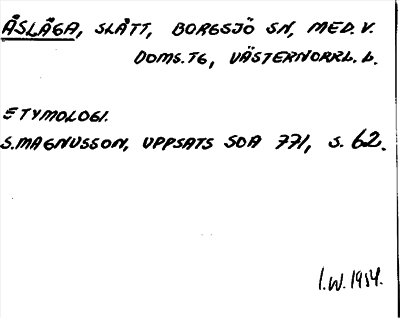 ÅSLÅGA, SLÅTT, BORGSJÖ SN, MED. V.
DOMS.TG, VÄSTERNORRL. L.
ETYMOLOGI.
S. MAGNUSSON, UPPSATS SOA 771, S. 62.
I.W. 1954.